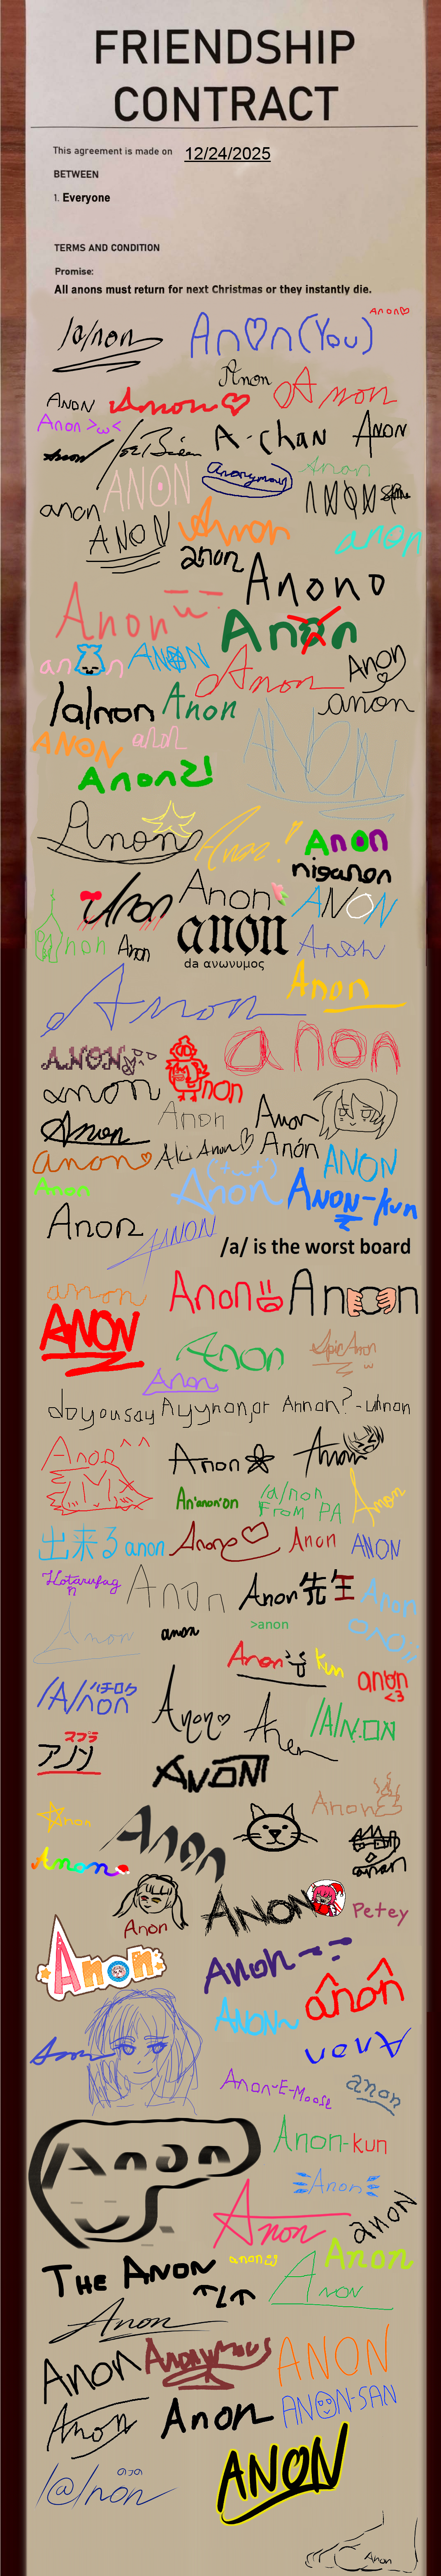 FRIENDSHIP
CONTRACT
This agreement is made on 12/24/2025
BETWEEN
1. Everyone
TERMS AND CONDITION
Promise:
All anons must return for next Christmas or they instantly die.
Anon♡
/a/non
An♡n (You)
Anon
Anon
Anon♡
Anon
Anon >ω<
Joe Biden
A-chan
Anon
Anon
ANON
Anonymous
Anon
anon
ANON
Anon
anon
anon
Anono
Anon
Anon
an n
ANON
Anon
Anon
/a/non
Anon
anon
ANON
anon
ANON
Anon2!
Anon
Anon!
Anon
niganon
Anon
Anon
ANON
anon
Anon
anon
da ανωνυμος
Anon
Anon
Anon
ANON
anon
anon
non
Anon
Anon
Anon
anon♡
Aki Anon♡
Anón
ANON
Anon
Anon
ANON-kun
Anon
ANON
/a/ is the worst board
anon
Anon
Anon
ANON
Anon
Epic Anon
Anon
do you say Ayynon, or Annon? - Unnon
Anon ^^
Anon
Anon
An'anon'on
/a/non
From PA
Anon
出来る anon
Anon♡
Anon
ANON
Hotarufag
Anon
Anon先生
Anon
Anon
anon
>anon
anon
Anon
kun
anon
<3
/A/non
ハチロク
Anon♡
Anon
/A/NON
スプラ
アノン
ANON
Anon
Anon
Anon
Anon
anon
Anon
ANON
Petey
Anon
Anon
ANON
ânôn
Anon
Anon
Anon-E-Moose
anon
Anon
Anon-kun
Anon
Anon
anon
anon
Anon
THE ANON
Anon
Anon
Anon
Anonymous
ANON
Anon
Anon
ANON-SAN
/@/non
ANON
Anon